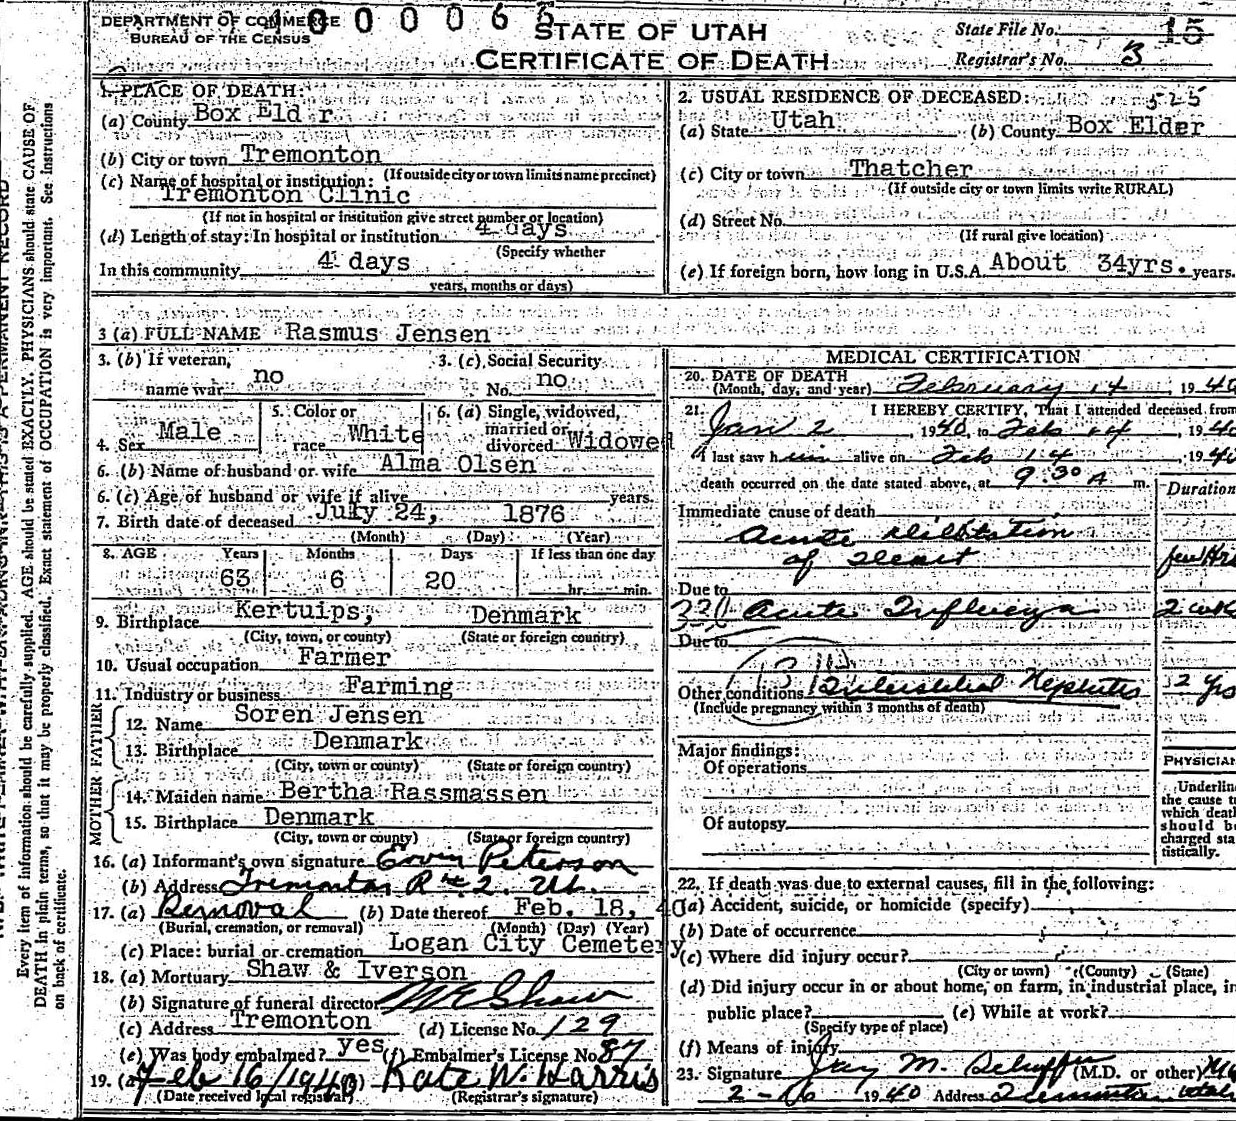 DEPARTMENT OF COMMERCE
BUREAU OF THE CENSUS
STATE OF UTAH
CERTIFICATE OF DEATH
State File No. 15
Registrar's No. 3
Every item of information should be carefully supplied. AGE should be stated EXACTLY. PHYSICIANS should state CAUSE OF
DEATH in plain terms, so that it may be properly classified. Exact statement of OCCUPATION is very important. See Instructions
on back of certificate.
1. PLACE OF DEATH:
(a) County Box Eld r
(b) City or town Tremonton
(If outside city or town limits name precinct)
(c) Name of hospital or institution:
Tremonton Clinic
(If not in hospital or institution give street number or location)
(d) Length of stay: In hospital or institution 4 days
(Specify whether
In this community 4 days
years, months or days)
2. USUAL RESIDENCE OF DECEASED: 525
(a) State Utah (b) County Box Elder
(c) City or town Thatcher
(If outside city or town limits write RURAL)
(d) Street No.
(If rural give location)
(e) If foreign born, how long in U.S.A. About 34yrs. years.
3 (a) FULL NAME Rasmus Jensen
3. (b) If veteran, name war no
3. (c) Social Security No. no
4. Sex Male
5. Color or race White
6. (a) Single, widowed, married or divorced Widowed
6. (b) Name of husband or wife Alma Olsen
6. (c) Age of husband or wife if alive years.
7. Birth date of deceased July 24, 1876
(Month) (Day) (Year)
8. AGE Years Months Days If less than one day
63 6 20 hr. min.
9. Birthplace Kertuips, Denmark
(City, town, or county) (State or foreign country)
10. Usual occupation Farmer
11. Industry or business Farming
FATHER
12. Name Soren Jensen
13. Birthplace Denmark
(City, town or county) (State or foreign country)
MOTHER
14. Maiden name Bertha Rassmassen
15. Birthplace Denmark
(City, town or county) (State or foreign country)
16. (a) Informant's own signature Ervin Peterson
(b) Address Tremonton R#2. Ut.
17. (a) Removal (b) Date thereof Feb. 18, 40
(Burial, cremation, or removal) (Month) (Day) (Year)
(c) Place: burial or cremation Logan City Cemetery
18. (a) Mortuary Shaw & Iverson
(b) Signature of funeral director M E Shaw
(c) Address Tremonton (d) License No. 129
(e) Was body embalmed? yes (f) Embalmer's License No. 87
19. (a) Feb 16/1940 Kate W. Harris
(Date received local registrar) (Registrar's signature)
MEDICAL CERTIFICATION
20. DATE OF DEATH
(Month, day, and year) February 14, 1940
21. I HEREBY CERTIFY, That I attended deceased from
Jan 2, 1940, to Feb 14, 1940
I last saw him alive on Feb 14, 1940
death occurred on the date stated above, at 9:30 A m.
Duration
Immediate cause of death
Acute Dilatation
of Heart few Hrs
Due to
Acute Influenza 2 wks
Due to
Other conditions Interstitial Nephritis 2 yrs
(Include pregnancy within 3 months of death)
Major findings:
Of operations
Of autopsy
PHYSICIAN
Underline
the cause to
which death
should be
charged sta-
tistically.
22. If death was due to external causes, fill in the following:
(a) Accident, suicide, or homicide (specify)
(b) Date of occurrence
(c) Where did injury occur?
(City or town) (County) (State)
(d) Did injury occur in or about home, on farm, in industrial place, in
public place? (e) While at work?
(Specify type of place)
(f) Means of injury
23. Signature Jay M. (M.D. or other) MD
2-16 1940 Address Tremonton, Utah